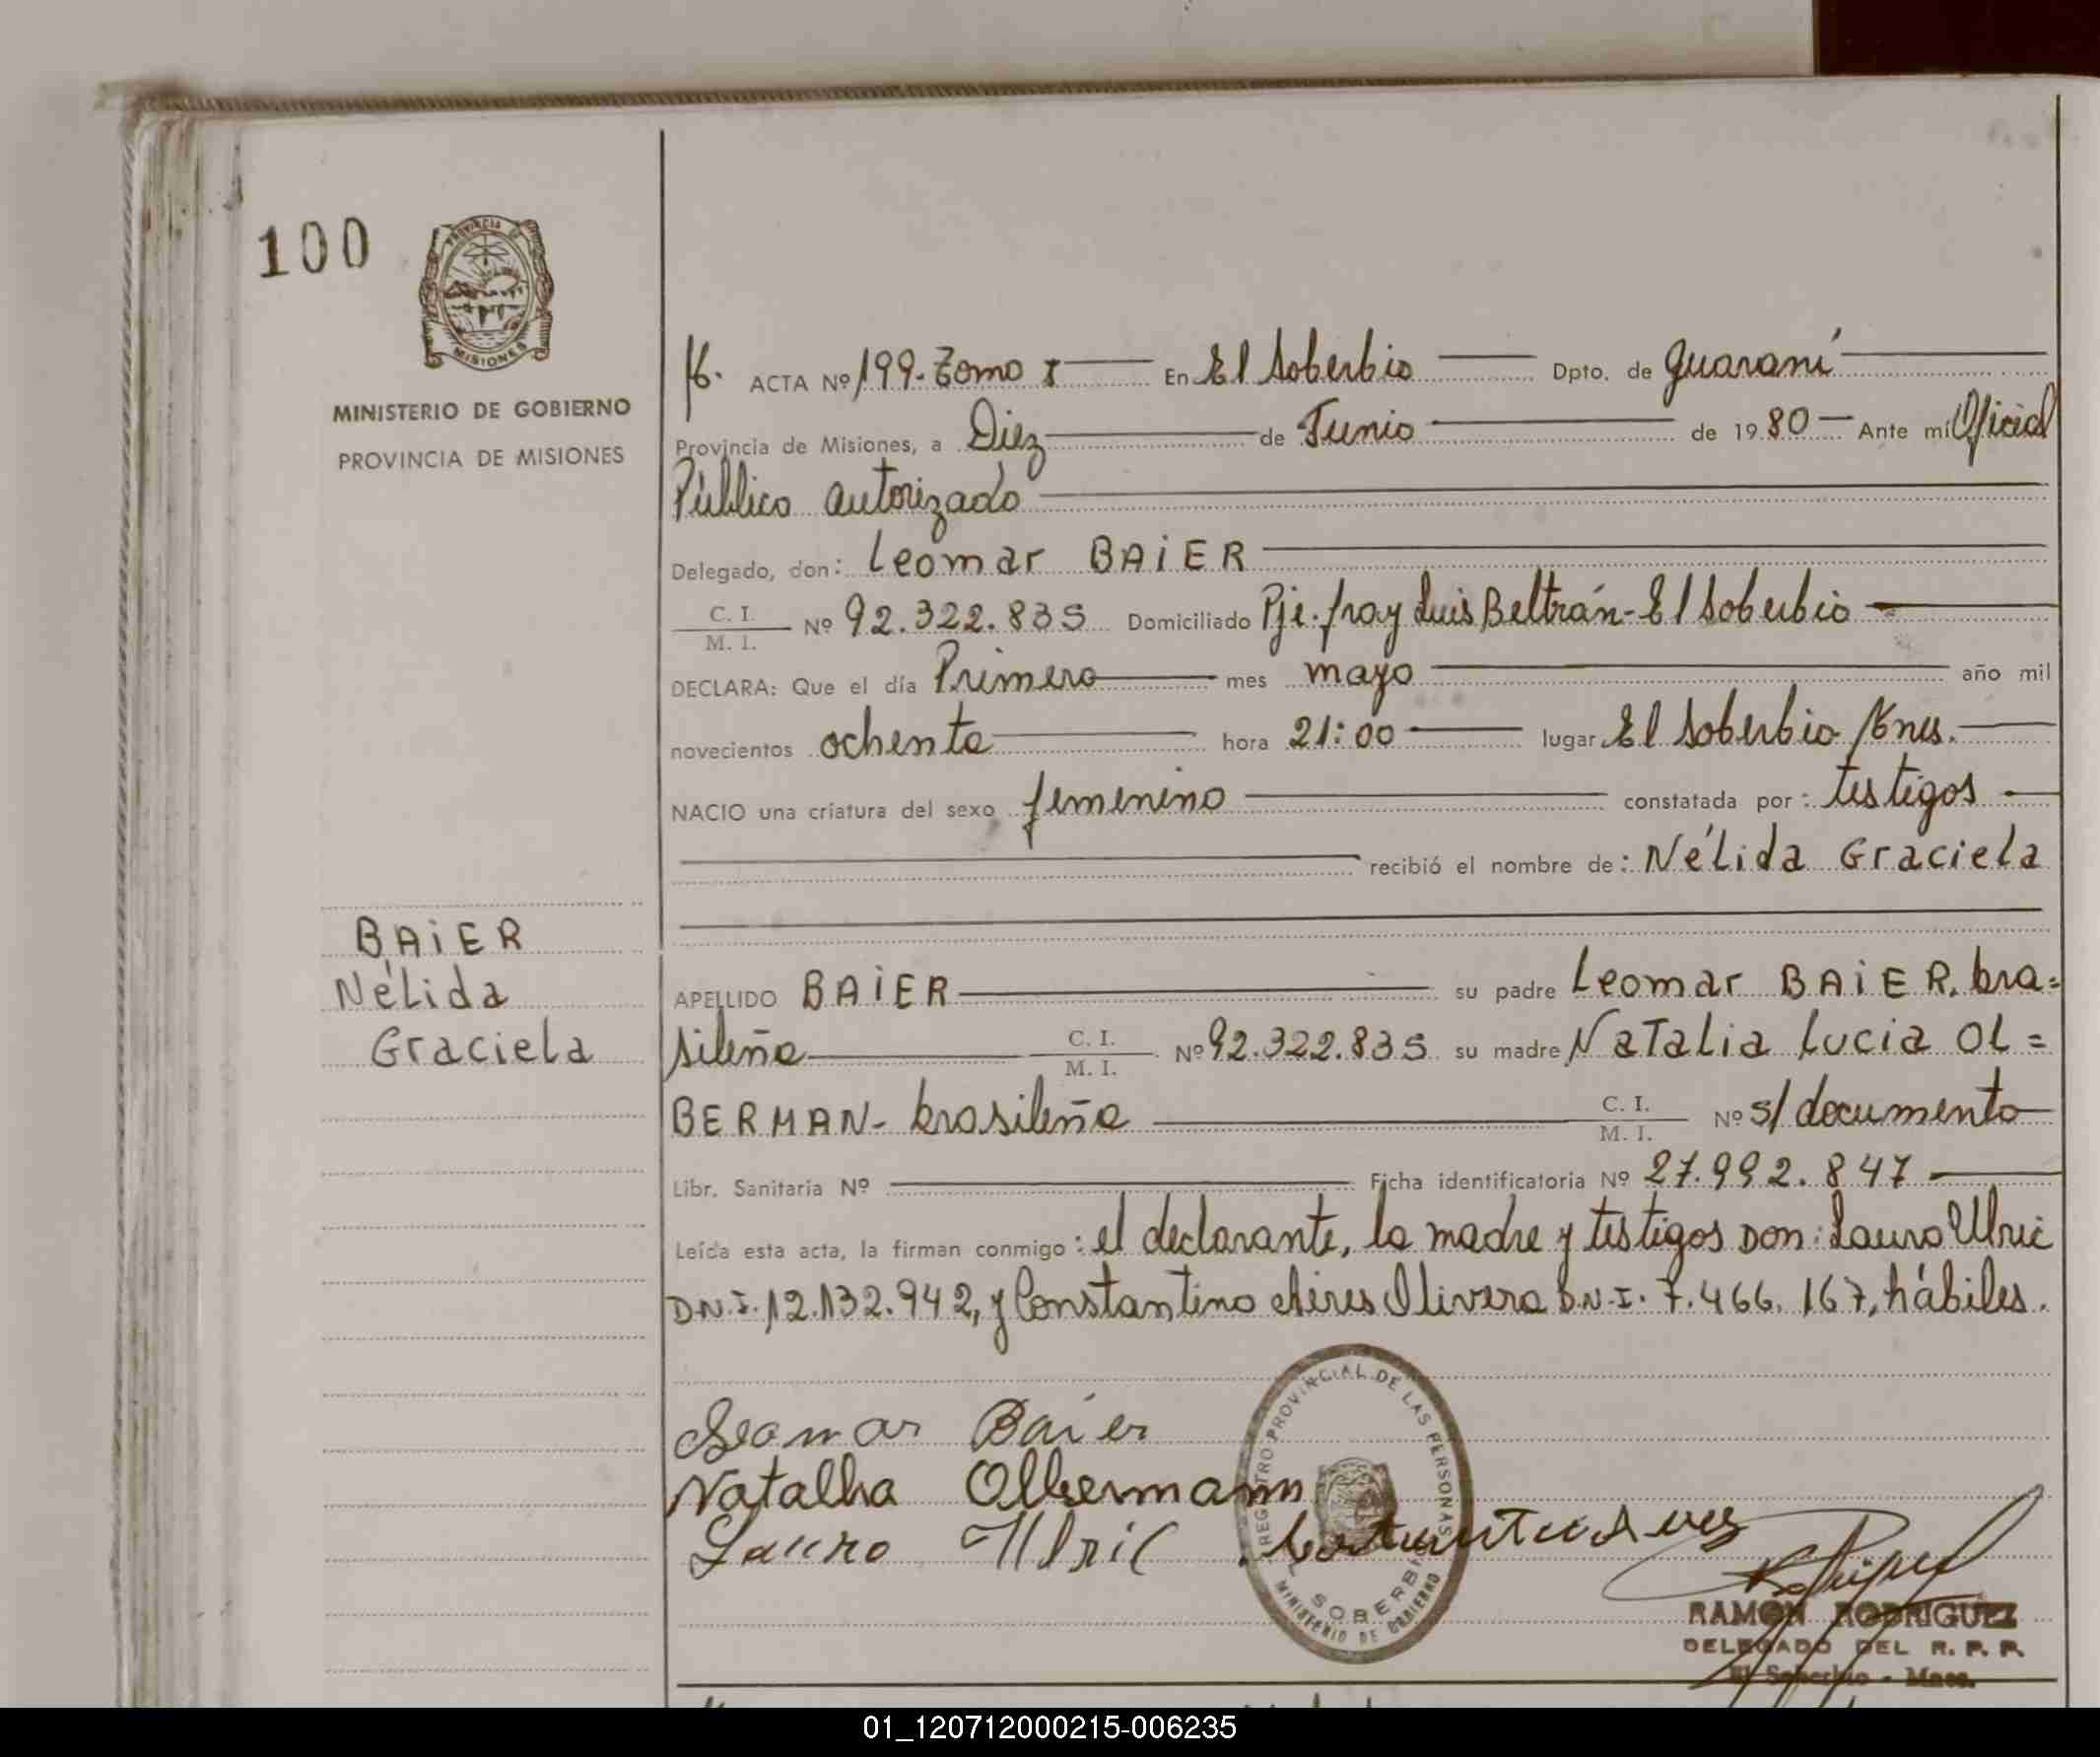 100
PROVINCIA DE
MISIONES
MINISTERIO DE GOBIERNO
PROVINCIA DE MISIONES
BAiER
Nélida
Graciela
ACTA Nº 199. Tomo I En El Soberbio Dpto. de Guaraní
Provincia de Misiones, a Diez de Junio de 1980 Ante mi Oficial
Público autorizado
Delegado, don: Leomar BAiER
C. I.
M. I. Nº 92.322.835 Domiciliado Pje. fray Luis Beltrán - El Soberbio
DECLARA: Que el día Primero mes mayo año mil
novecientos ochenta hora 21:00 lugar El Soberbio
NACIO una criatura del sexo femenino constatada por: testigos
recibió el nombre de: Nélida Graciela
APELLIDO BAiER su padre Leomar BAiER, bra=
sileña C. I.
M. I. Nº 92.322.835 su madre NaTalia Lucia OL=
BERMAN- brasileña C. I.
M. I. Nº s/documento
Libr. Sanitaria Nº Ficha identificatoria Nº 27.992.847
Leída esta acta, la firman conmigo: el declarante, la madre y testigos Don: Lauro Ulric
D.N.I. 12.132.942, y Constantino Aires Olivera D.N.I. 7.466.167, hábiles.
Leomar Baier
Natalha Olbermann
Lauro Ulric
REGISTRO PROVINCIAL DE LAS PERSONAS
SOBERBIO
MINISTERIO DE GOBIERNO
RAMON RODRIGUEZ
DELEGADO DEL R. P. P.
El Soberbio - Mnes.
01_120712000215-006235